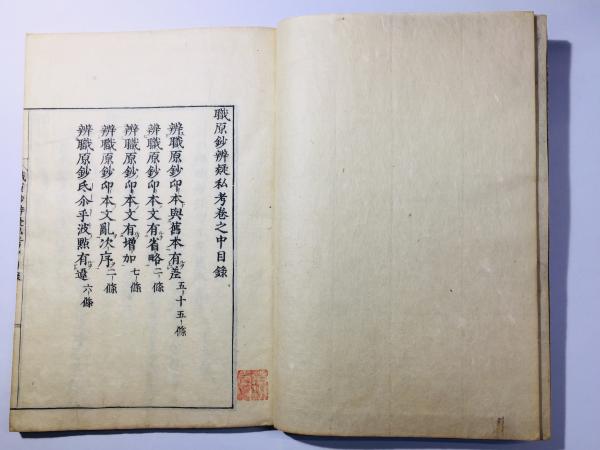 職原鈔辨疑私考卷之中目録
辨職原鈔印本與舊本有差五十五條
辨職原鈔印本文有省略二條
辨職原鈔印本文有增加七條
辨職原鈔印本文亂次序二條
辨職原鈔氏尒乎波點有違六條